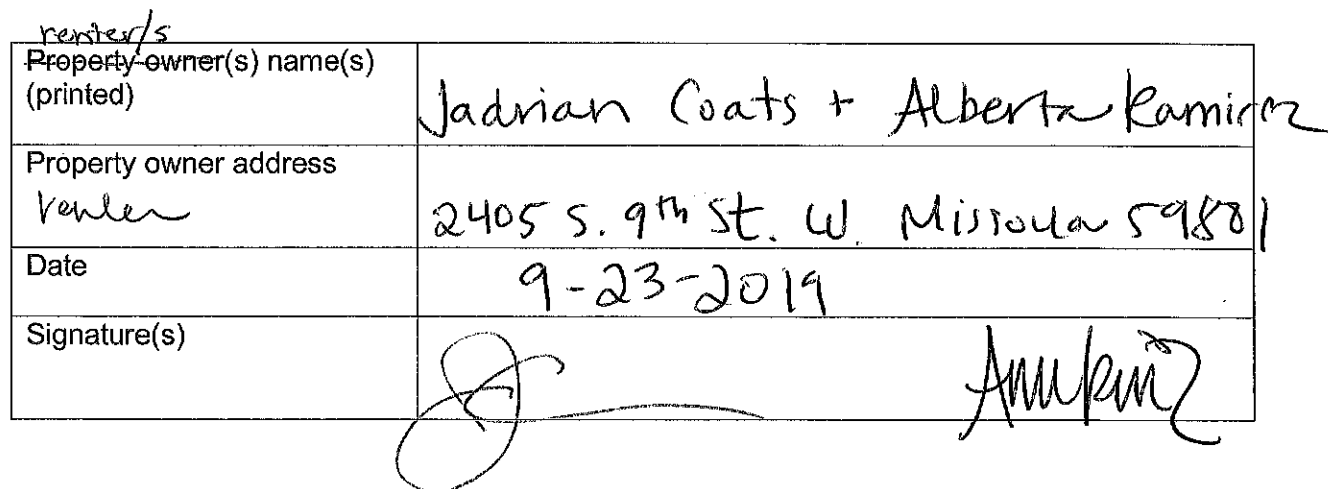 renter/s
Property owner(s) name(s)
(printed)
Jadrian Coats + Alberta Ramirez
Property owner address
renter
2405 S. 9th St. W. Missoula 59801
Date
9-23-2019
Signature(s)